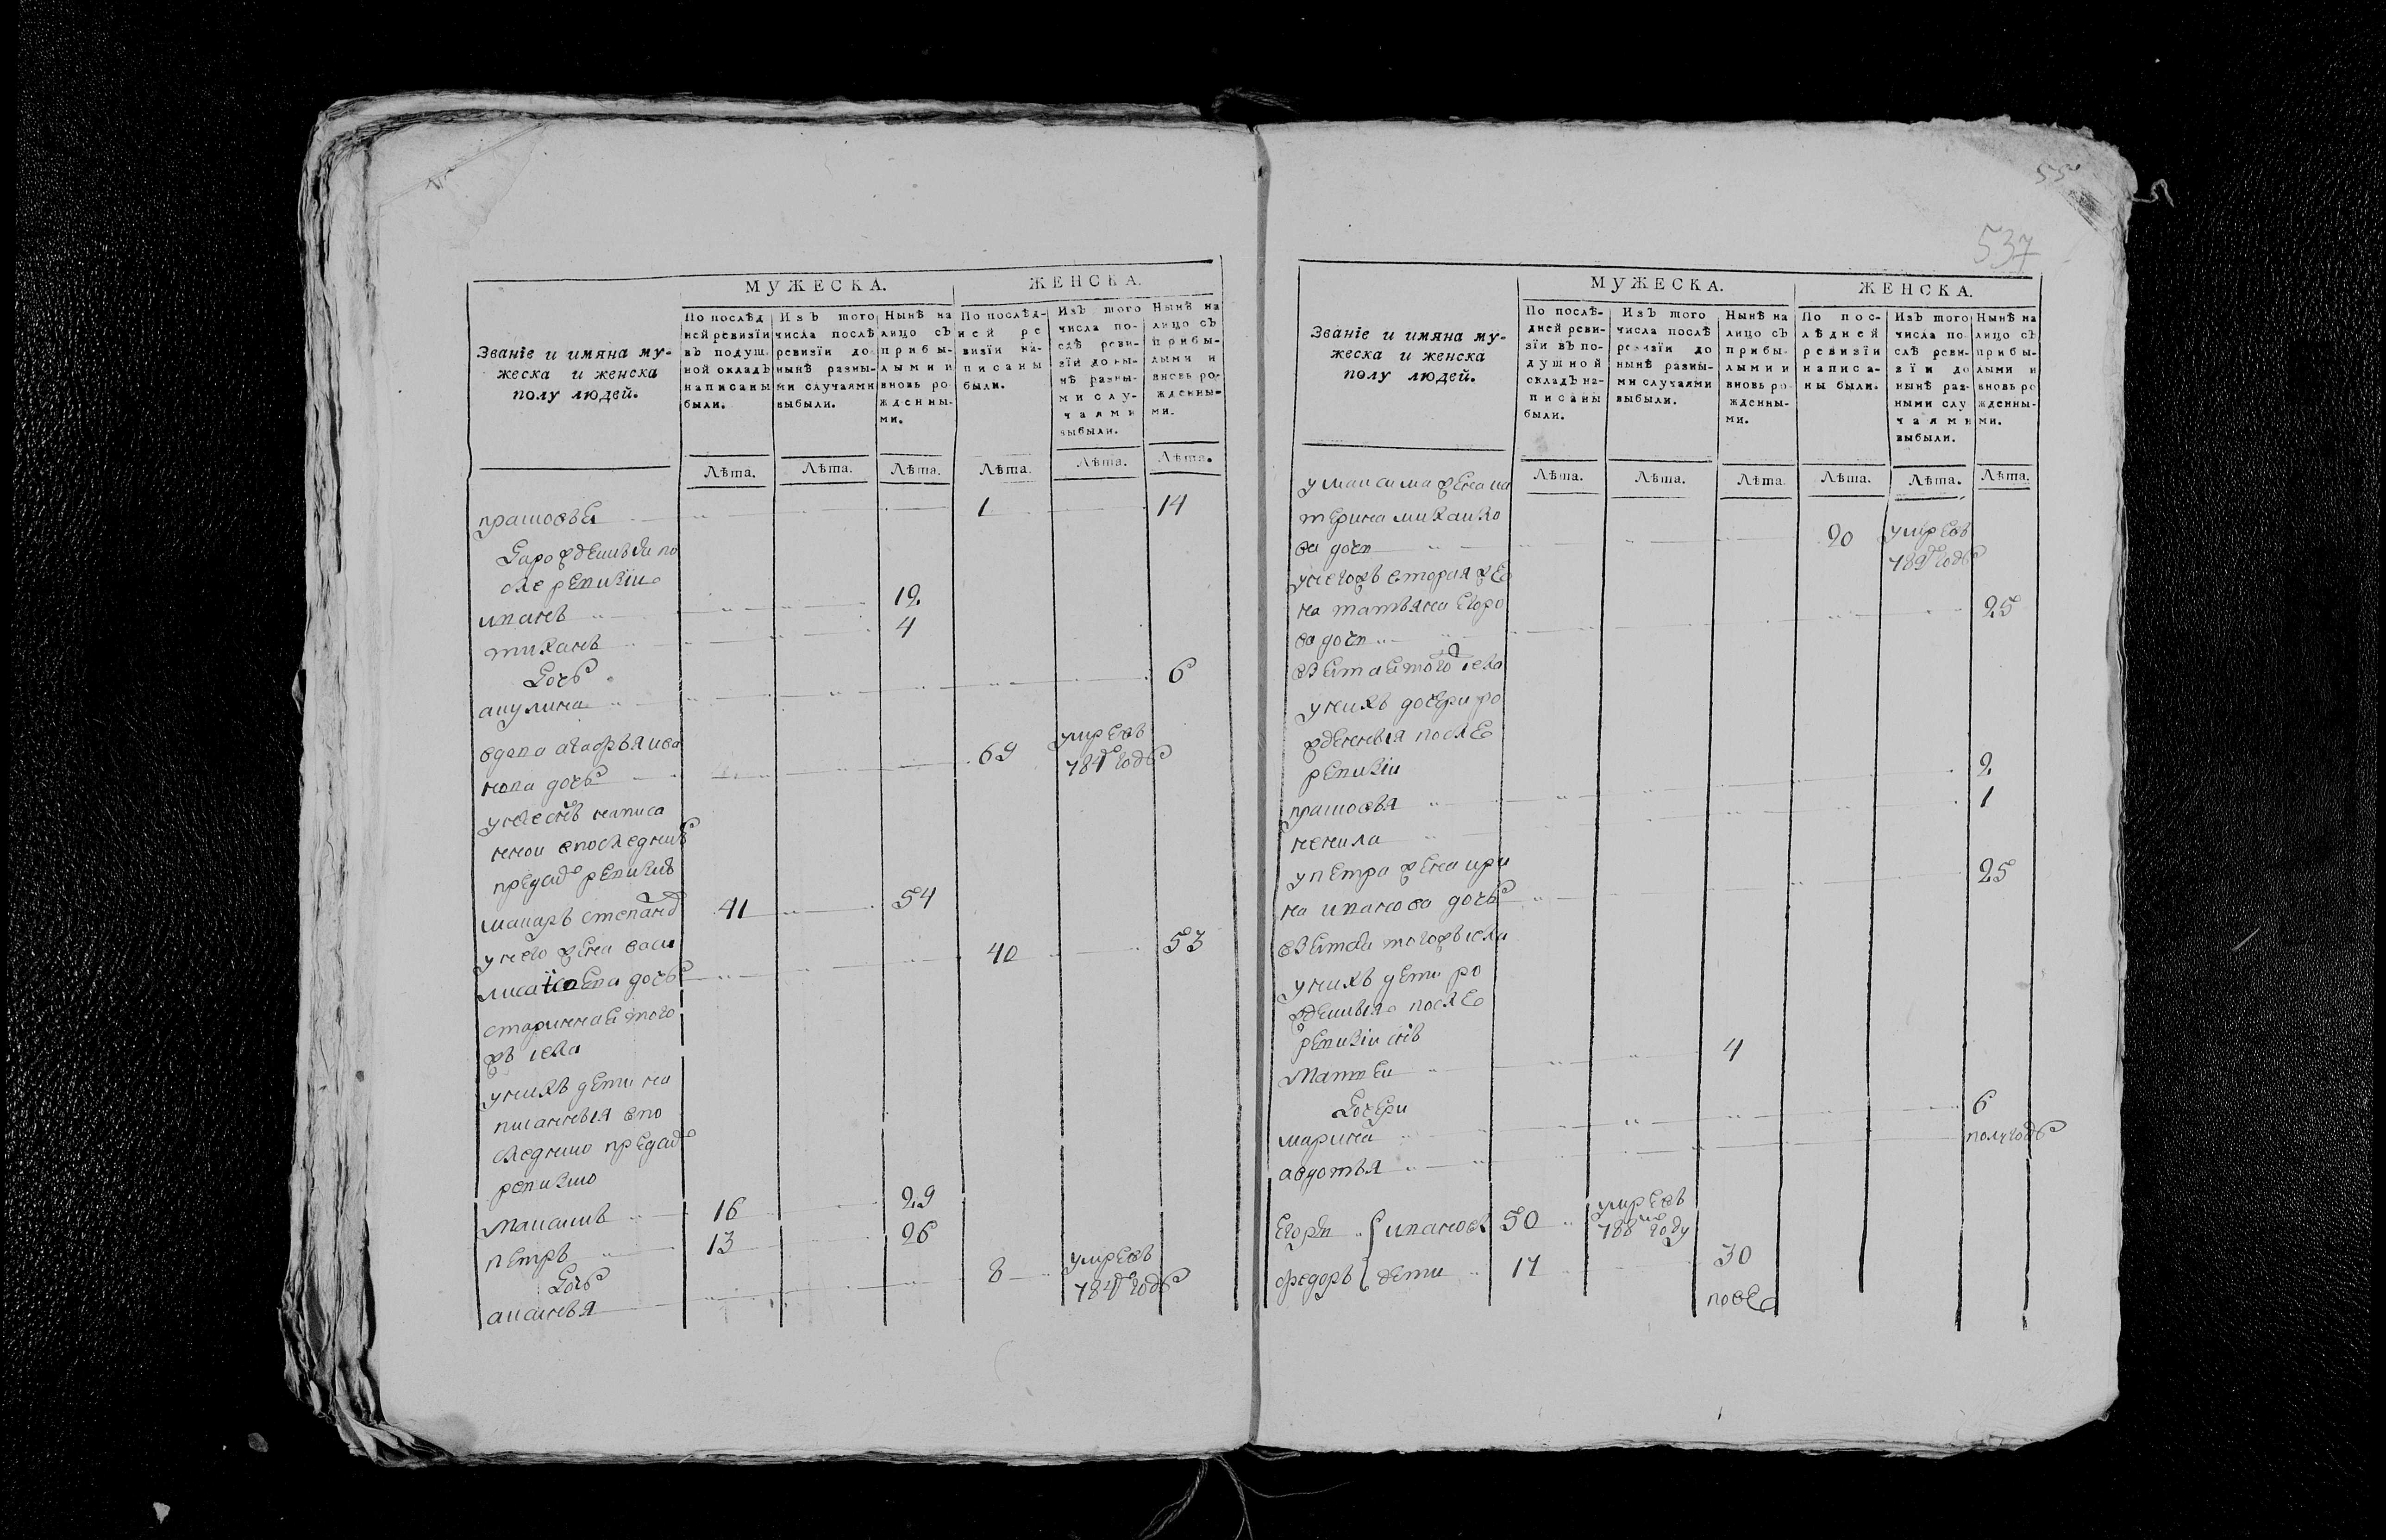 55
537
МУЖЕСКА. ЖЕНСКА.
Званіе и имяна му-
жеска и женска
полу людей.
По послѣд
ней ревизіи
въ подуш
ной окладъ
написаны
были.
Изъ того
числа послѣ
ревизіи до
нынѣ разны-
ми случаями
выбыли.
Нынѣ на
лицо съ
прибы-
лыми и
вновь ро
жденны-
ми.
По послѣд-
ней ре
визіи на-
писаны
были.
Изъ того
числа по-
слѣ реви-
зіи до ны-
нѣ разны-
ми слу-
чаями
выбыли.
Нынѣ на
лицо съ
прибы-
лыми и
вновь ро-
жденны-
ми.
Лѣта. Лѣта. Лѣта. Лѣта. Лѣта. Лѣта.
прасковья 1 14
рожденныя по
сле ревизіи
иванъ 12
тиханъ 4
дочь
акулина 6
вдова агафья ива
нова дочь 69 умрева 784 годѣ
у нее снъ написа
нной впоследнию
предъ ревизию
макаръ степанов 41 54
у него жена васи
лиса дочь 40 53
стариннаи того
жъ села
у нихъ дети на
писанныя впо
следнию предъ
ревизию
максимъ 16 29
петръ 13 26
дочь
аксинья 8 умрева 784 годѣ
МУЖЕСКА. ЖЕНСКА.
Званіе и имяна му-
жеска и женска
полу людей.
По послѣ-
дней реви-
зіи въ по-
душной
окладъ на-
писаны
были.
Изъ того
числа послѣ
ревизіи до
нынѣ разны-
ми случаями
выбыли.
Нынѣ на
лицо съ
прибы-
лыми и
вновь ро
жденны-
ми.
По пос-
лѣдней
ревизіи
написа-
ны были.
Изъ того
числа по
слѣ реви-
зіи до
нынѣ раз-
ными слу
чаями
выбыли.
Нынѣ на
лицо съ
прибы-
лыми и
вновь ро
жденны-
ми.
Лѣта. Лѣта. Лѣта. Лѣта. Лѣта. Лѣта.
у максима жена ка
терина михаило
ва дочь 20 умрева 789 годѣ
у негожъ вторая же
на татьяна егоро
ва дочь 25
взятая того села
у нихъ дочери ро
жденныя после
ревизіи
прасковья 2
ненила 1
у петра жена ири
на иванова дочь 25
взятая тогожъ села
у нихъ дети ро
жденныя после
ревизіи снъ
Матвеи 4
Дочери
марина 6
авдотья полугодѣ
Егоръ ивановы 50 умревъ 788 году
федоръ дети 17 30